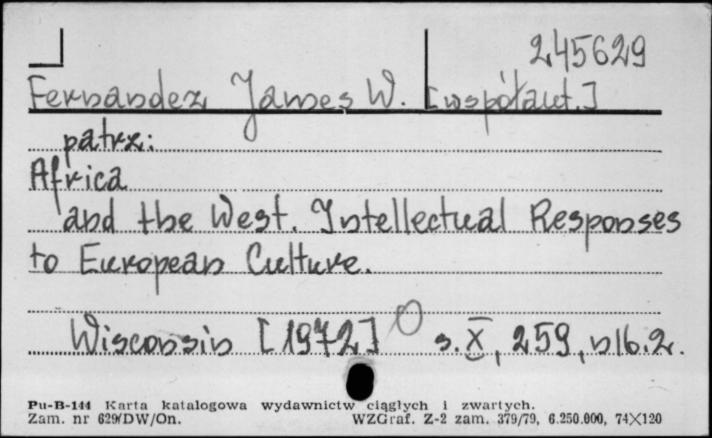 245629
Fernandez James W. [współaut.]
patrz:
Africa
and the West. Intellectual Responses
to European Culture.
Wisconsin [1972] s. X, 259, nlb. 2.
Pu-B-144 Karta katalogowa wydawnictw ciągłych i zwartych.
Zam. nr 629/DW/On. WZGraf. Z-2 zam. 379/79, 6.250.000, 74X120